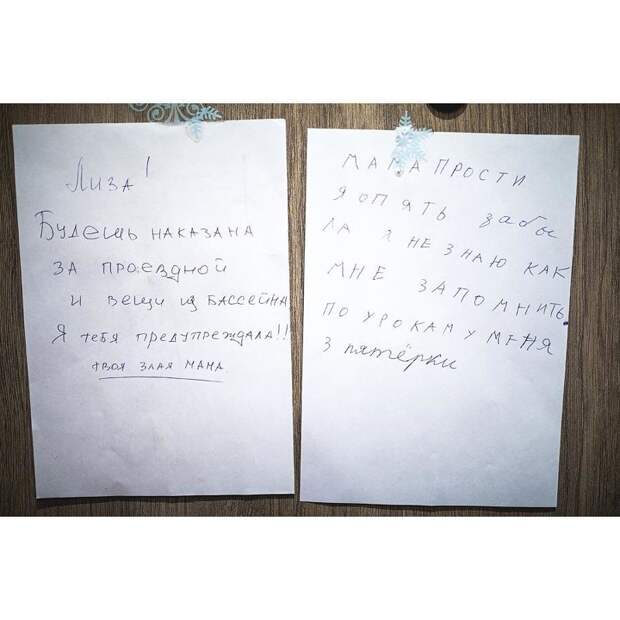 Лиза!
Будешь наказана
за проездной
и вещи из бассейна
Я тебя предупреждала!!
твоя злая мама.
МАМА ПРОСТИ
Я ОПЯТЬ забы
ЛА Я НЕ ЗНАЮ КАК
МНЕ ЗАПОМНИТЬ.
ПО УРОКАМ У МЕНЯ
3 пятёрки